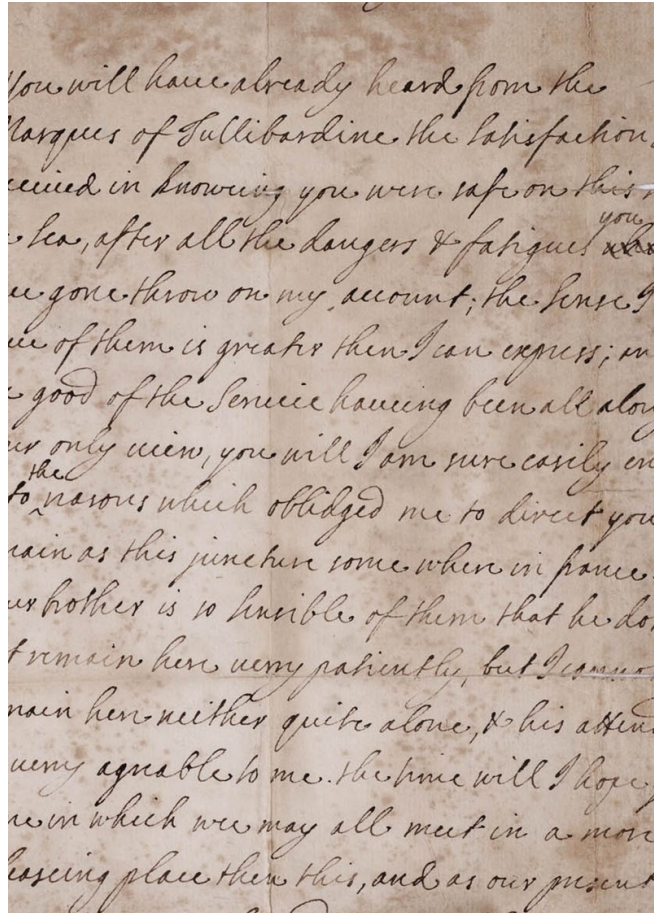 You will have already heard from the
Marques of Tullibardine the satisfaction
ceived in knowing you were safe on this
sea, after all the dangers & fatigues you
ve gone throw on my account; the sense I
ve of them is greater then I can express; an
good of the Service haveing been all alon
ur only view, you will I am sure easily en
to the reasons which oblidged me to direct you
main as this juncture some where in france
ur brother is so sensible of them that he do
t remain here verry patiently, but I canno
main here neither quite alone, & his atten
verry agreable to me. the time will I hope
me in which wee may all meet in a more
leaseing place then this, and as our present